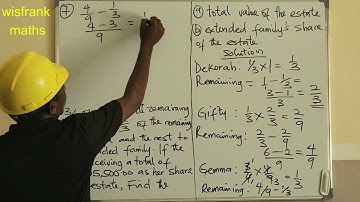 wisfrank
maths
7
4/9 - 1/3
4 - 3 / 9 = 1
remaining
of the remaining
and the rest to
family. If the
ceiving a total of
5,500.00 as her share
estate, Find the
a) total value of the estate
b) extended family's share
of the estate
Solution
Dekorah: 1/3 x 1 = 1/3
Remaining = 1 - 1/3 =
3 - 1 / 3 = 2/3
Gifty: 1/3 x 2/3 = 2/9
Remaining: 2/3 - 2/9
6 - 2 / 9 = 4/9
Gemma: 3/4 x 4/9 = 1/3
Remaining: 4/9 - 1/3